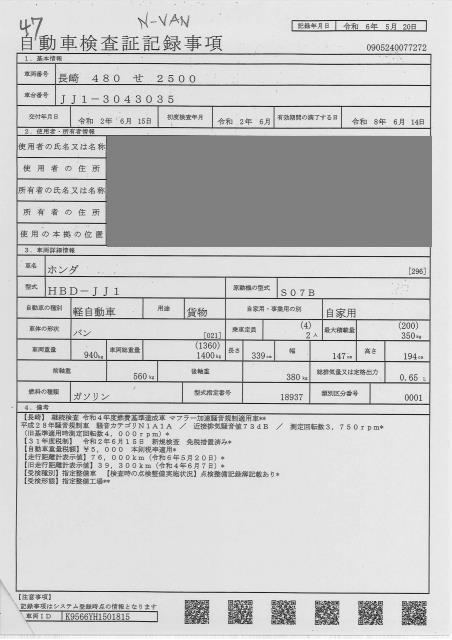 47
N-VAN
記録年月日 令和 6年 5月 20日
自動車検査証記録事項
0905240077272
1. 基本情報
車両番号 長崎 480 せ 2500
車台番号 JJ1-3043035
交付年月日 令和 2年 6月 15日 初度検査年月 令和 2年 6月 有効期間の満了する日 令和 8年 6月 14日
2. 使用者・所有者情報
使用者の氏名又は名称
使用者の住所
所有者の氏名又は名称
所有者の住所
使用の本拠の位置
3. 車両詳細情報
車名 ホンダ [296]
型式 HBD-JJ1 原動機の型式 S07B
自動車の種別 軽自動車 用途 貨物 自家用・事業用の別 自家用
車体の形状 バン [021] 乗車定員 (4) 2人 最大積載量 (200) 350kg
車両重量 940kg 車両総重量 (1360) 1400kg 長さ 339cm 幅 147cm 高さ 194cm
前軸重 560kg 後軸重 380kg 総排気量又は定格出力 0.65 L
燃料の種類 ガソリン 型式指定番号 18937 類別区分番号 0001
4. 備考
【長崎】 継続検査 令和4年度燃費基準達成車 マフラー加速騒音規制適用車**
平成28年騒音規制車 騒音カテゴリN1A1A / 近接排気騒音値73dB / 測定回転数3,750rpm*
(旧基準適用時測定回転数4,000rpm)*
【31年度税制】 令和2年6月15日 新規検査 免税措置済み*
【自動車重量税額】¥5,000 本則税率適用*
【走行距離計表示値】76,000km (令和6年5月20日)*
【旧走行距離計表示値】39,300km (令和4年6月7日)*
【受検種別】指定整備車 【検査時の点検整備実施状況】点検整備記録簿記載あり*
【受検形態】指定整備工場**
【注意事項】
記録事項はシステム登録時点の情報となります
車両ID K9566YH1501815